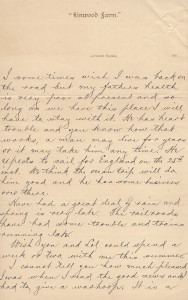 "Linwood Farm."
I some times wish I was back on
the road but my fathers health
is very poor at present and so
long as we have this place I will
have to stay with it. He has heart
trouble and you know how that
works, a man may live for years
or it may take him any time. He
expects to sail for England on the 25th
inst. We think the ocean trip will do
him good and he has some business
over there.
Have had a great deal of rain and
spring is very late. The railroads
have had some trouble and trains
running late.
Wish you and Lol could spend a
week or two with me this summer.
I cannot tell you how much pleased
I was when I read the good news and
had to give a washoop. It is a